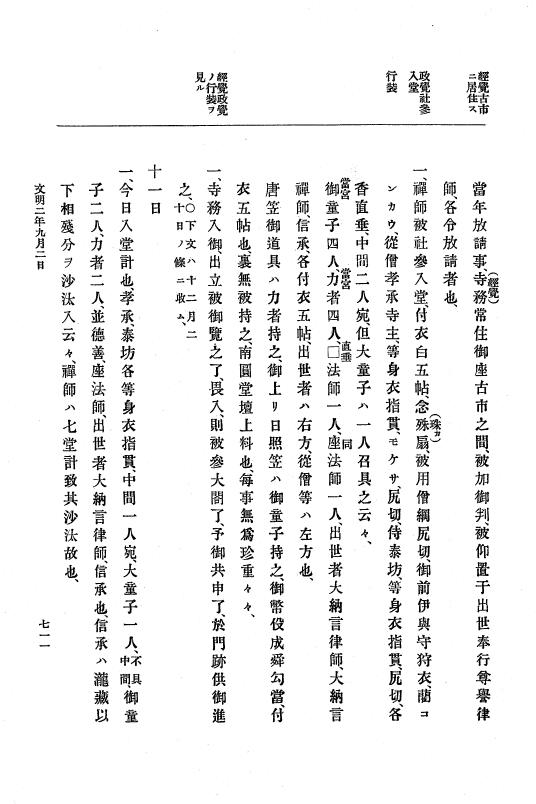 經覺古市
ニ居住ス
政覺社參
入堂
行裝
經覺政覺
ノ行裝ヲ
見ル
當年放請事、寺務常住御座古市之間、被加御判、被仰置于出世奉行尊譽律
(經覺)
師各令放請者也、
一、禪師被社參入堂、付衣白五帖、念殊、扇、被用僧綱尻切、御前伊與守狩衣、藺コ
(珠カ)
ンカウ、從僧孝承寺主、等身衣指貫、モケサ、尻切、侍泰坊、等身衣指貫、尻切、各
香直垂、中間二人宛、但大童子ハ一人召具之云々、
御童子四人、力者四人、□法師一人、座法師一人、出世者大納言律師、大納言
當宮
當宮
直垂
同
禪師、信承各付衣五帖、出世者ハ右方、從僧等ハ左方也、
唐笠御道具ハ力者持之、御上リ日照笠ハ御童子持之、御幣役成舜勾當、付
衣五帖也、裏無被持之、南圓堂壇上料也、每事無爲珍重々々、
一、寺務入御出立被御覽之了、畏入、則被參大閤了、予御共申了、於門跡供御進
之、○下文ハ十二月二
十日ノ條ニ收ム、
十一日
一、今日入堂計也、孝承、泰坊各等身衣指貫、中間一人宛、大童子一人、不具
中間、御童
子二人、力者二人、並德善、座法師、出世者大納言律師、信承也、信承ハ瀧藏以
下相殘分ヲ沙汰入云々、禪師ハ七堂計致其沙汰故也、
文明二年九月二日
七一一